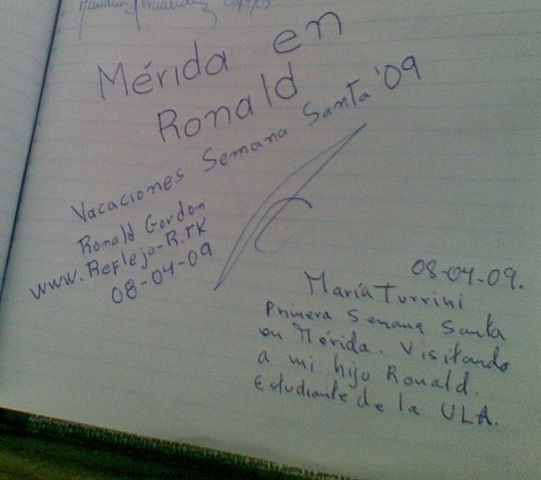 Mérida en
Ronald
Vacaciones Semana Santa '09
Ronald Gordon
www.Reflejo-R.TK
08-04-09
08-04-09.
María Turrini
Primera Semana Santa
en Mérida. Visitando
a mi hijo Ronald.
Estudiante de la ULA.